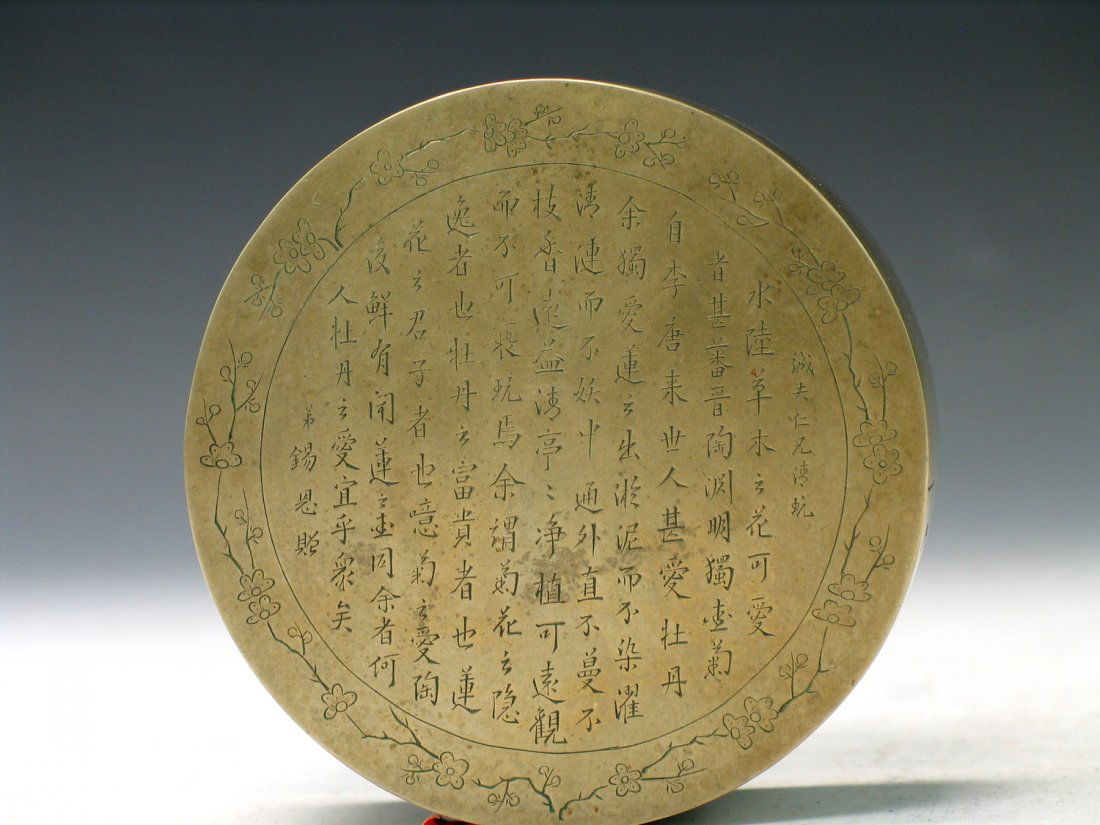 誠夫仁兄清玩
水陸草木之花可愛
者甚蕃晋陶渊明獨愛菊
自李唐来世人甚愛牡丹
余獨愛蓮之出淤泥而不染濯
清漣而不妖中通外直不蔓不
枝香遠益清亭〻净植可遠觀
而不可褻玩焉余謂菊花之隐
逸者也牡丹之富貴者也蓮
花之君子者也噫菊之愛陶
後鮮有聞蓮之愛同余者何
人牡丹之愛宜乎衆矣
弟錫恩贈